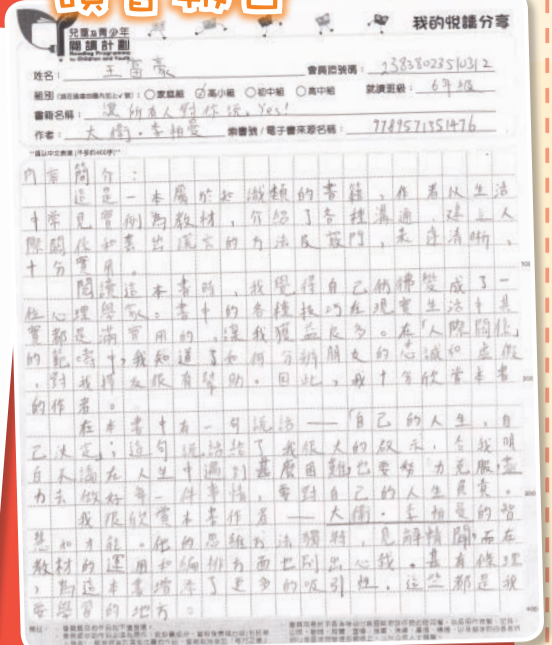 讀書報告
兒童及青少年
閱讀計劃
Reading Programme
for Children and Youth
我的悅讀分享
姓名：王富豪
會員證號碼：23838023510312
組別 ○家庭組 ☑高小組 ○初中組 ○高中組 就讀班級：6年級
書籍名稱：讓所有人對你說，Yes!
作者：大衛·李柏曼 索書號/電子書來源名稱：9789571351476
內容簡介：
這是一本屬於知識類的書籍，作者以生活
中常見實例為教材，介紹了各種溝通、建立人
際關係和看出謊言的方法及竅門，表達清晰，
十分實用。
100
閱讀這本書時，我覺得自己仿佛變成了一
位心理學家。書中的各種技巧在現實生活中其
實都是滿實用的，讓我獲益良多。在「人際關係」
的範疇中，我知道了如何分辨朋友的忠誠和虛假
，對我擇友很有幫助。因此，我十分欣賞本書
200
的作者。
在本書中有一句說話——「自己的人生，自
己決定」這句說話給了我很大的啟示，令我明
白不論在人生中遇到甚麼困難也要努力克服，盡
力去做好每一件事情，要對自己的人生負責。
300
我很欣賞本書作者——大衛·李柏曼的智
慧和才能。他的思維方法獨特，見解精闢，而在
教材的運用和編排方面也別出心裁，甚有條理
，為這本書增添了更多的吸引性，這些都是我
要學習的地方。
400